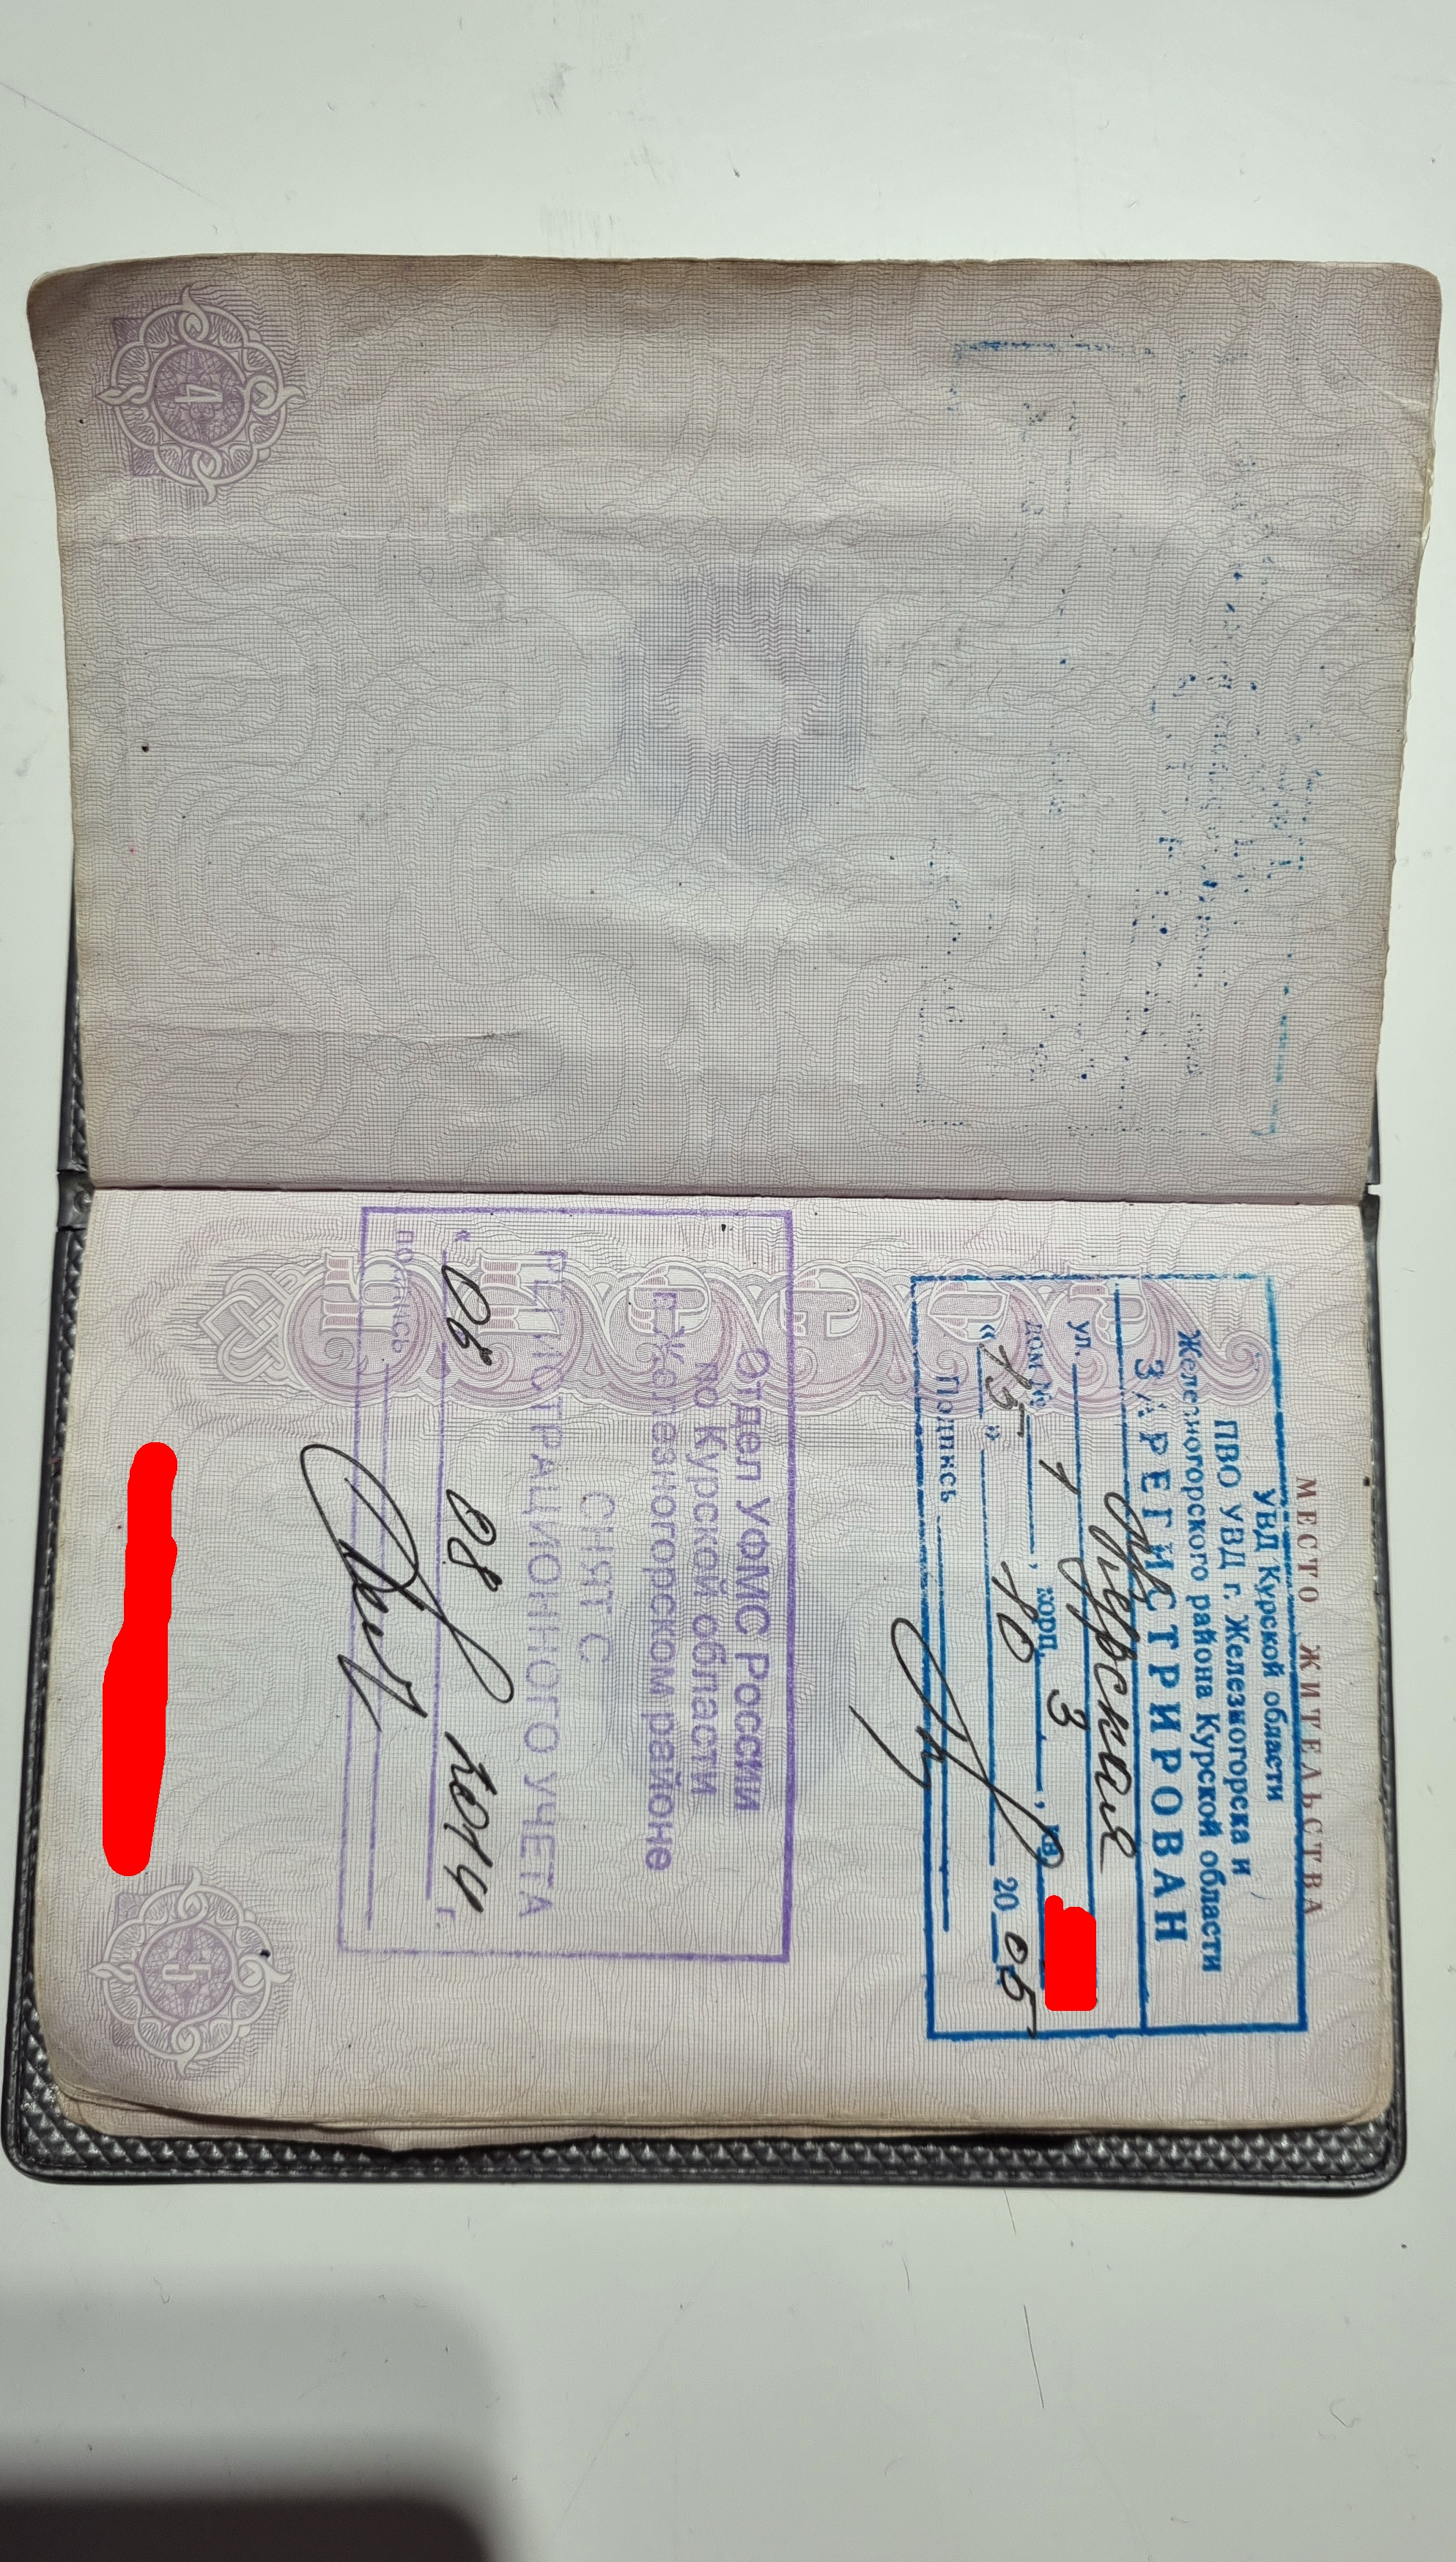 4
МЕСТО ЖИТЕЛЬСТВА
УВД Курской области
ПВО УВД г. Железногорска и
Железногорского района Курской области
ЗАРЕГИСТРИРОВАН
ул.
дом № 1, корп. 3, кв.
« 15 » 10 20 05
Подпись
Отдел УФМС России
по Курской области
в Железногорском районе
СНЯТ С
РЕГИСТРАЦИОННОГО УЧЕТА
« 06 08 2014 г.
подпись
5